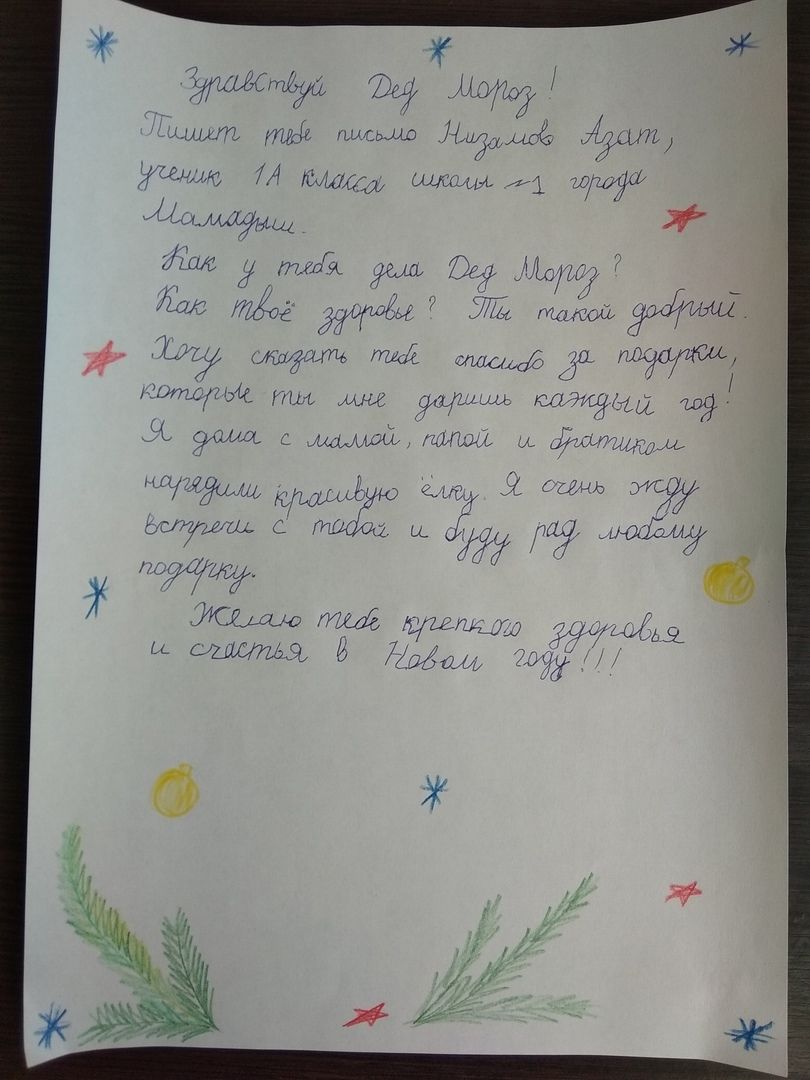 Здравствуй Дед Мороз!
Пишет тебе письмо Низамов Азат,
ученик 1А класса школы №1 города
Мамадыш.
Как у тебя дела Дед Мороз?
Как твоё здоровье? Ты такой добрый.
Хочу сказать тебе спасибо за подарки,
которые ты мне даришь каждый год!
Я дома с мамой, папой и братиком
нарядили красивую ёлку. Я очень жду
встречи с тобой и буду рад любому
подарку.
Желаю тебе крепкого здоровья
и счастья в Новом году!!!